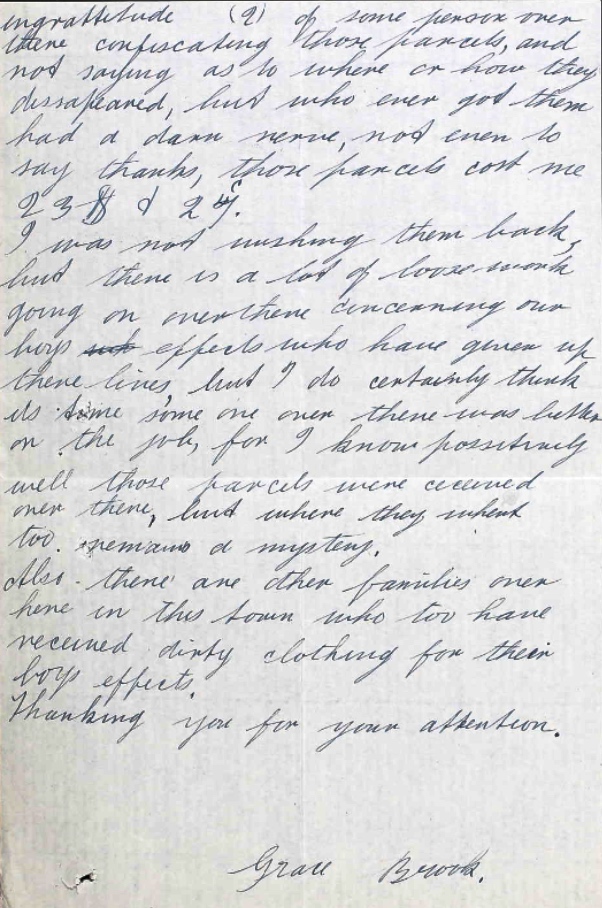 ingrattitude (2) of some person over
there confiscating those parcels, and
not saying as to where or how they
dissapeared, but who ever got them
had a darn nerve, not even to
say thanks, those parcels cost me
23$ & 24¢.
I was not wishing them back,
but there is a lot of loose work
going on over there concerning our
boys effects who have given up
there lives, but I do certainly think
its time some one over there was better
on the job, for I know possitively
well those parcels were received
over there, but where they whent
too. remains a mystery.
Also. there are other families over
here in this town who too have
received dirty clothing for their
boys effects.
Thanking you for your attention.
Grace Brook.